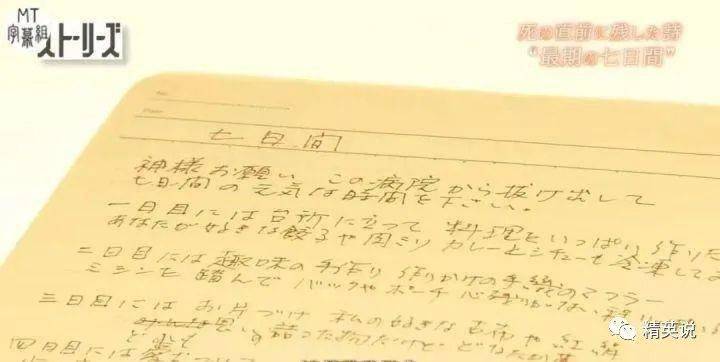 MT
字幕組
ストーリーズ
死の直前に残した詩
“最期の七日間”
七日間
神様お願い この病院から抜け出して
七日間の元気な時間を下さい。
一日目には台所に立って 料理をいっぱい作りた
あなたが好きな餃子や肉みそ カレーもシチューも冷凍して
二日目には趣味の手作り 作りかけの手織のマフラー
ミシンも踏んで バックやポーチ 心残りがない
三日目には お片づけ 私の好きな古布や紅絹
思い詰った物だけど
四日目には
精英说